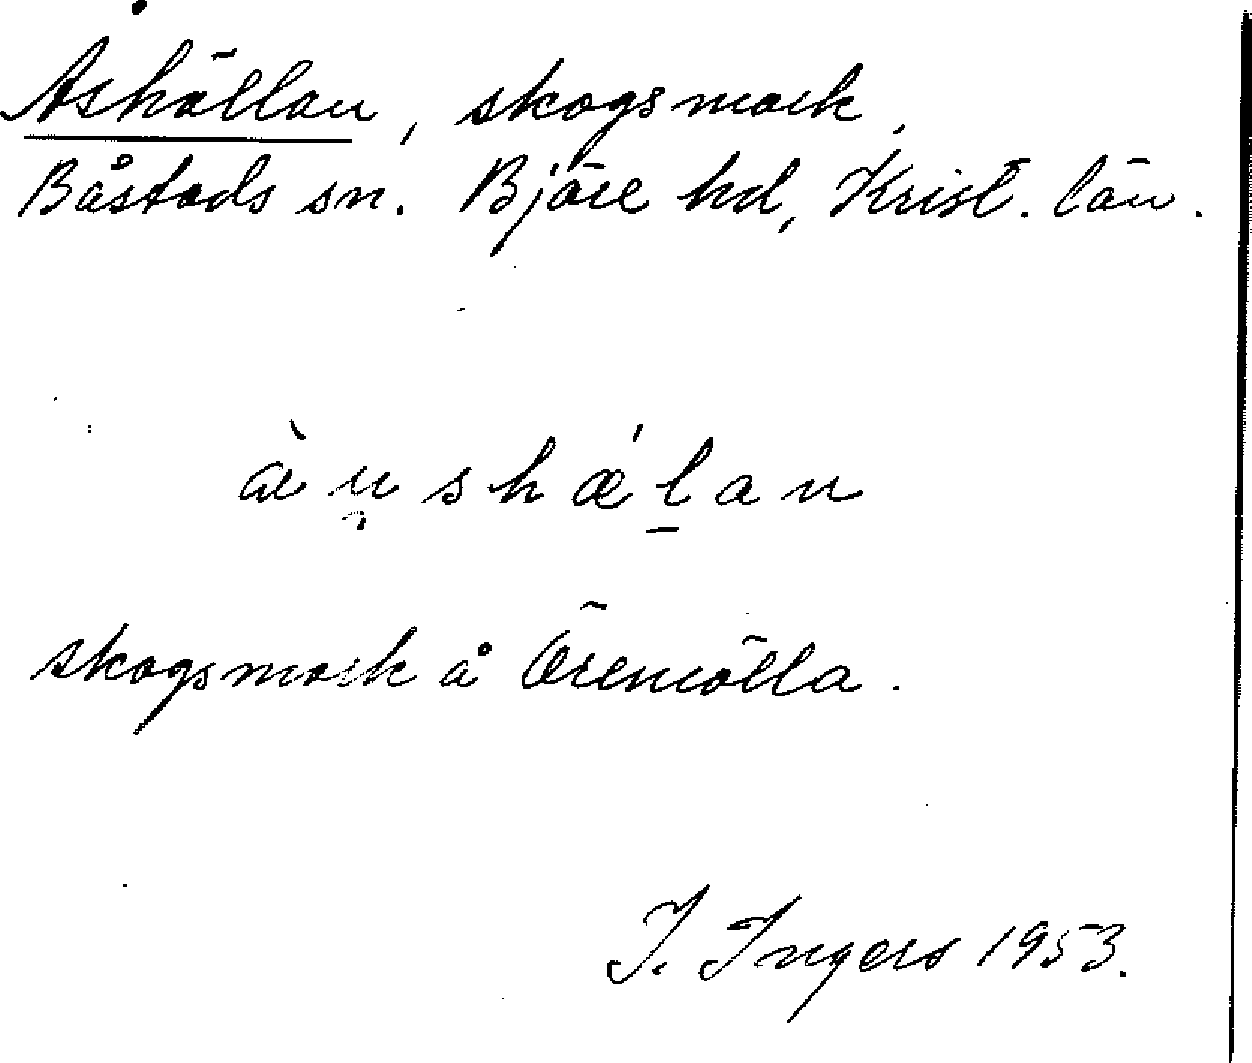 Åshällan, skogsmark,
Båstads sn. Bjäre hd, Krist. län.
æ̀u̯shǽl̠an
skogsmark å Öremölla.
I. Ingers 1953.